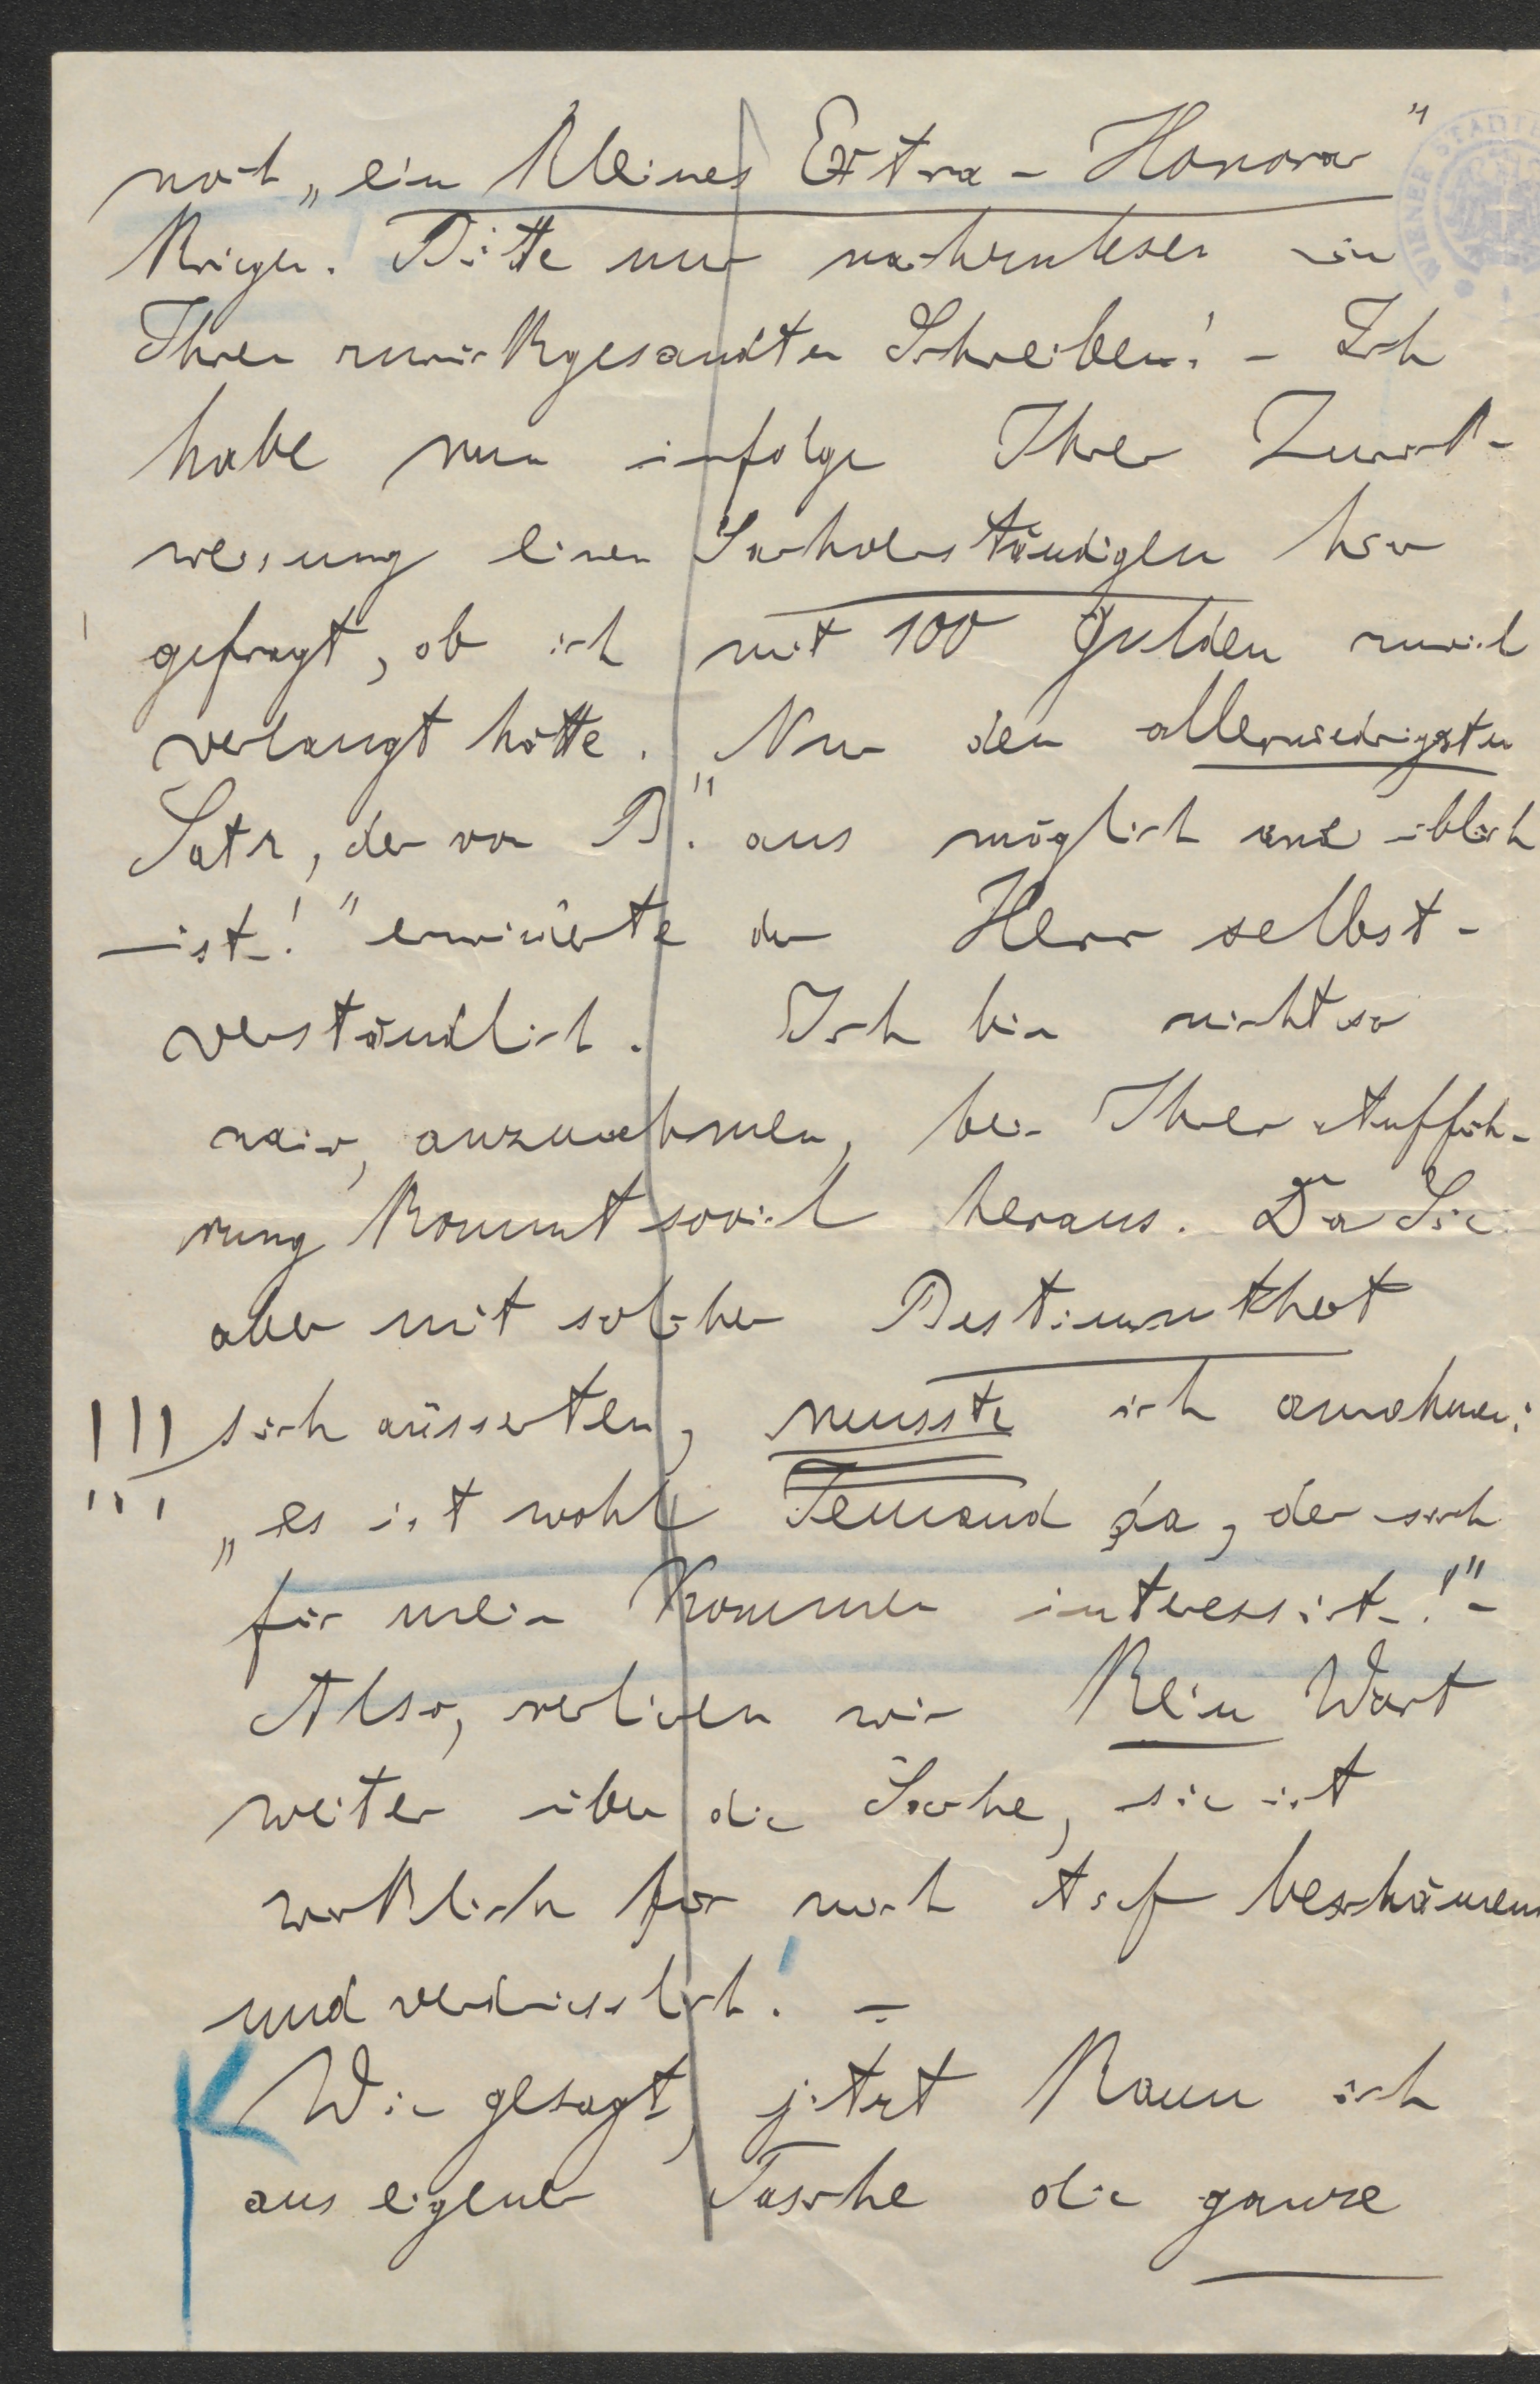 noch „ein kleines Extra-Honorar"
kriegen. Bitte nur nachzulesen in
Ihren zurückgesandten Schreiben! - Ich
habe nun infolge Ihrer Zurück-
weisung einen Sachverständigen hier
gefragt, ob ich mit 100 Gulden zuviel
verlangt hätte. „Nur den allerniedrigsten
Satz, der von B. aus möglich und üblich
ist!" erwiderte der Herr selbst-
verständlich. Ich bin nicht so
naiv, anzunehmen, bei Ihrer Auffüh-
rung kommt soviel heraus. Da Sie
aber mit solcher Bestimmtheit
!!! sich äusserten, musste ich annehmen:
!!! „es ist wohl Jemand da, der sich
für mein Kommen interessirt!" -
Also, verlieren wir kein Wort
weiter über die Sache, sie ist
wirklich für mich tief beschämend
und verdriesslich! -
Wie gesagt, jetzt kann ich
aus eigener Tasche die ganze